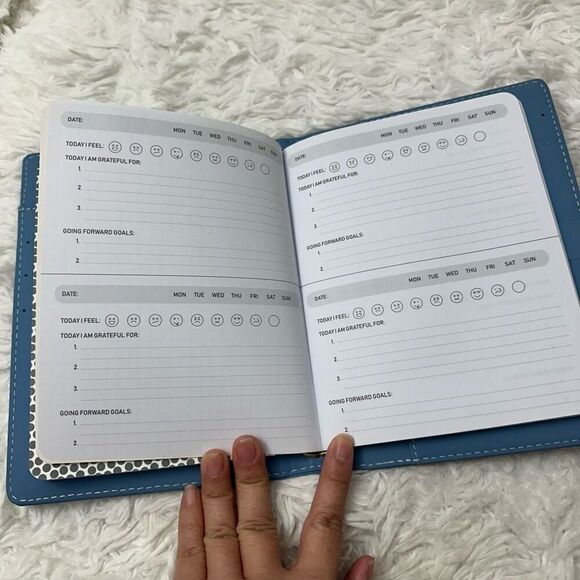 DATE: MON TUE WED THU FRI SAT SUN
TODAY I FEEL:
TODAY I AM GRATEFUL FOR:
1.
2.
3.
GOING FORWARD GOALS:
1.
2.
DATE: MON TUE WED THU FRI SAT SUN
TODAY I FEEL:
TODAY I AM GRATEFUL FOR:
1.
2.
3.
GOING FORWARD GOALS:
1.
2.
DATE: MON TUE WED THU FRI SAT SUN
TODAY I FEEL:
TODAY I AM GRATEFUL FOR:
1.
2.
3.
GOING FORWARD GOALS:
1.
2.
DATE: MON TUE WED THU FRI SAT SUN
TODAY I FEEL:
TODAY I AM GRATEFUL FOR:
1.
2.
3.
GOING FORWARD GOALS:
1.
2.